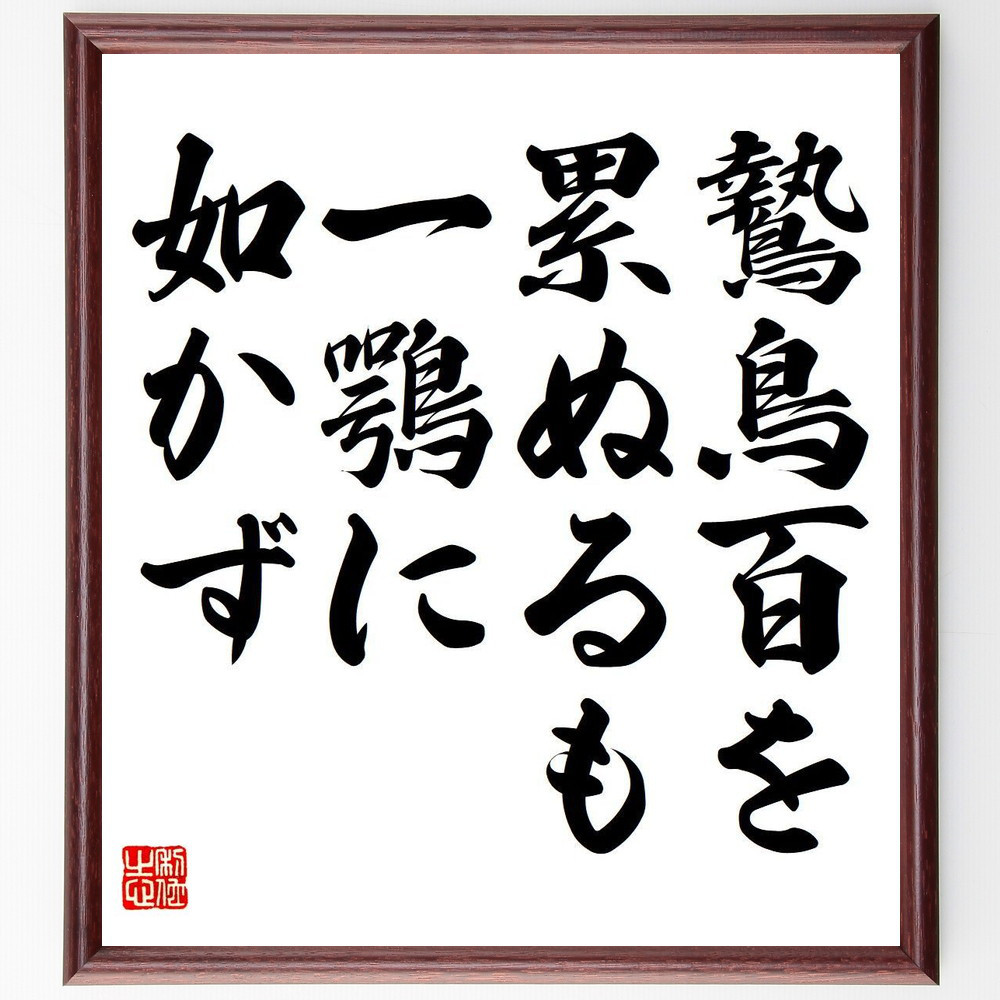 鷙鳥百を
累ぬるも
一鶚に
如かず